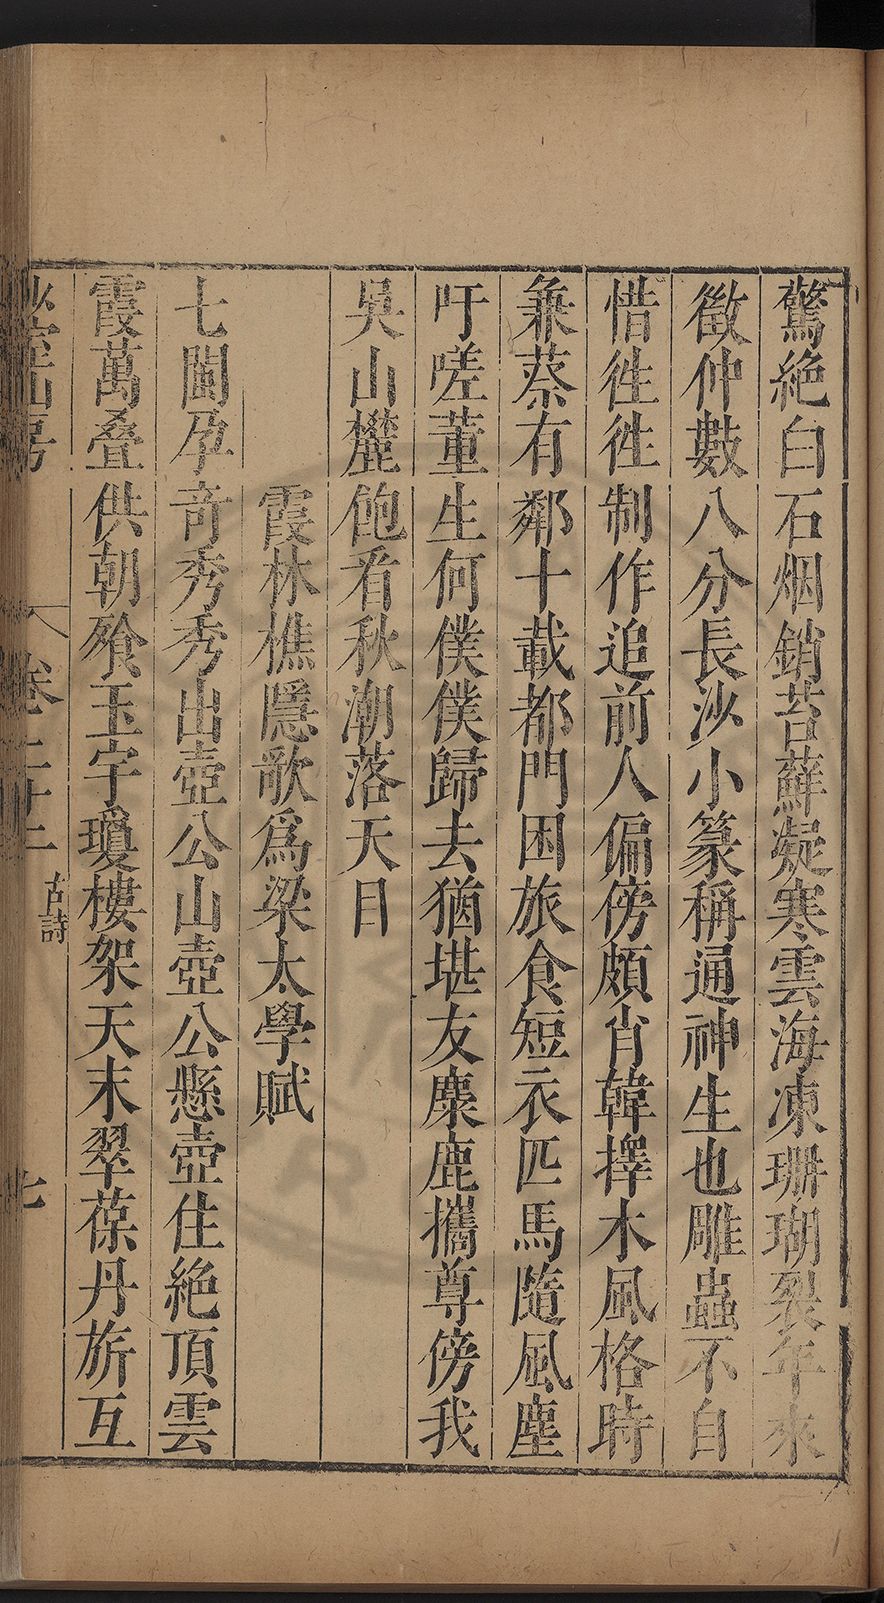 驚絶白石烟銷苔蘚凝寒雲海凍珊瑚裂年來
徵仲數八分長沙小篆稱通神生也雕蟲不自
惜徃徃制作追前人偏傍頗肖韓擇木風格時
兼蔡有鄰十載都門困旅食短衣匹馬隨風塵
吁嗟董生何僕僕歸去猶堪友麋鹿攜尊傍我
吳山麓飽看秋潮落天目
霞林樵隱歌爲梁太學賦
七閩孕竒秀秀出壺公山壺公懸壺住絶頂雲
霞萬叠供朝飱玉宇瓊樓架天末翠葆丹旂互
山房
卷二十二
古詩
七